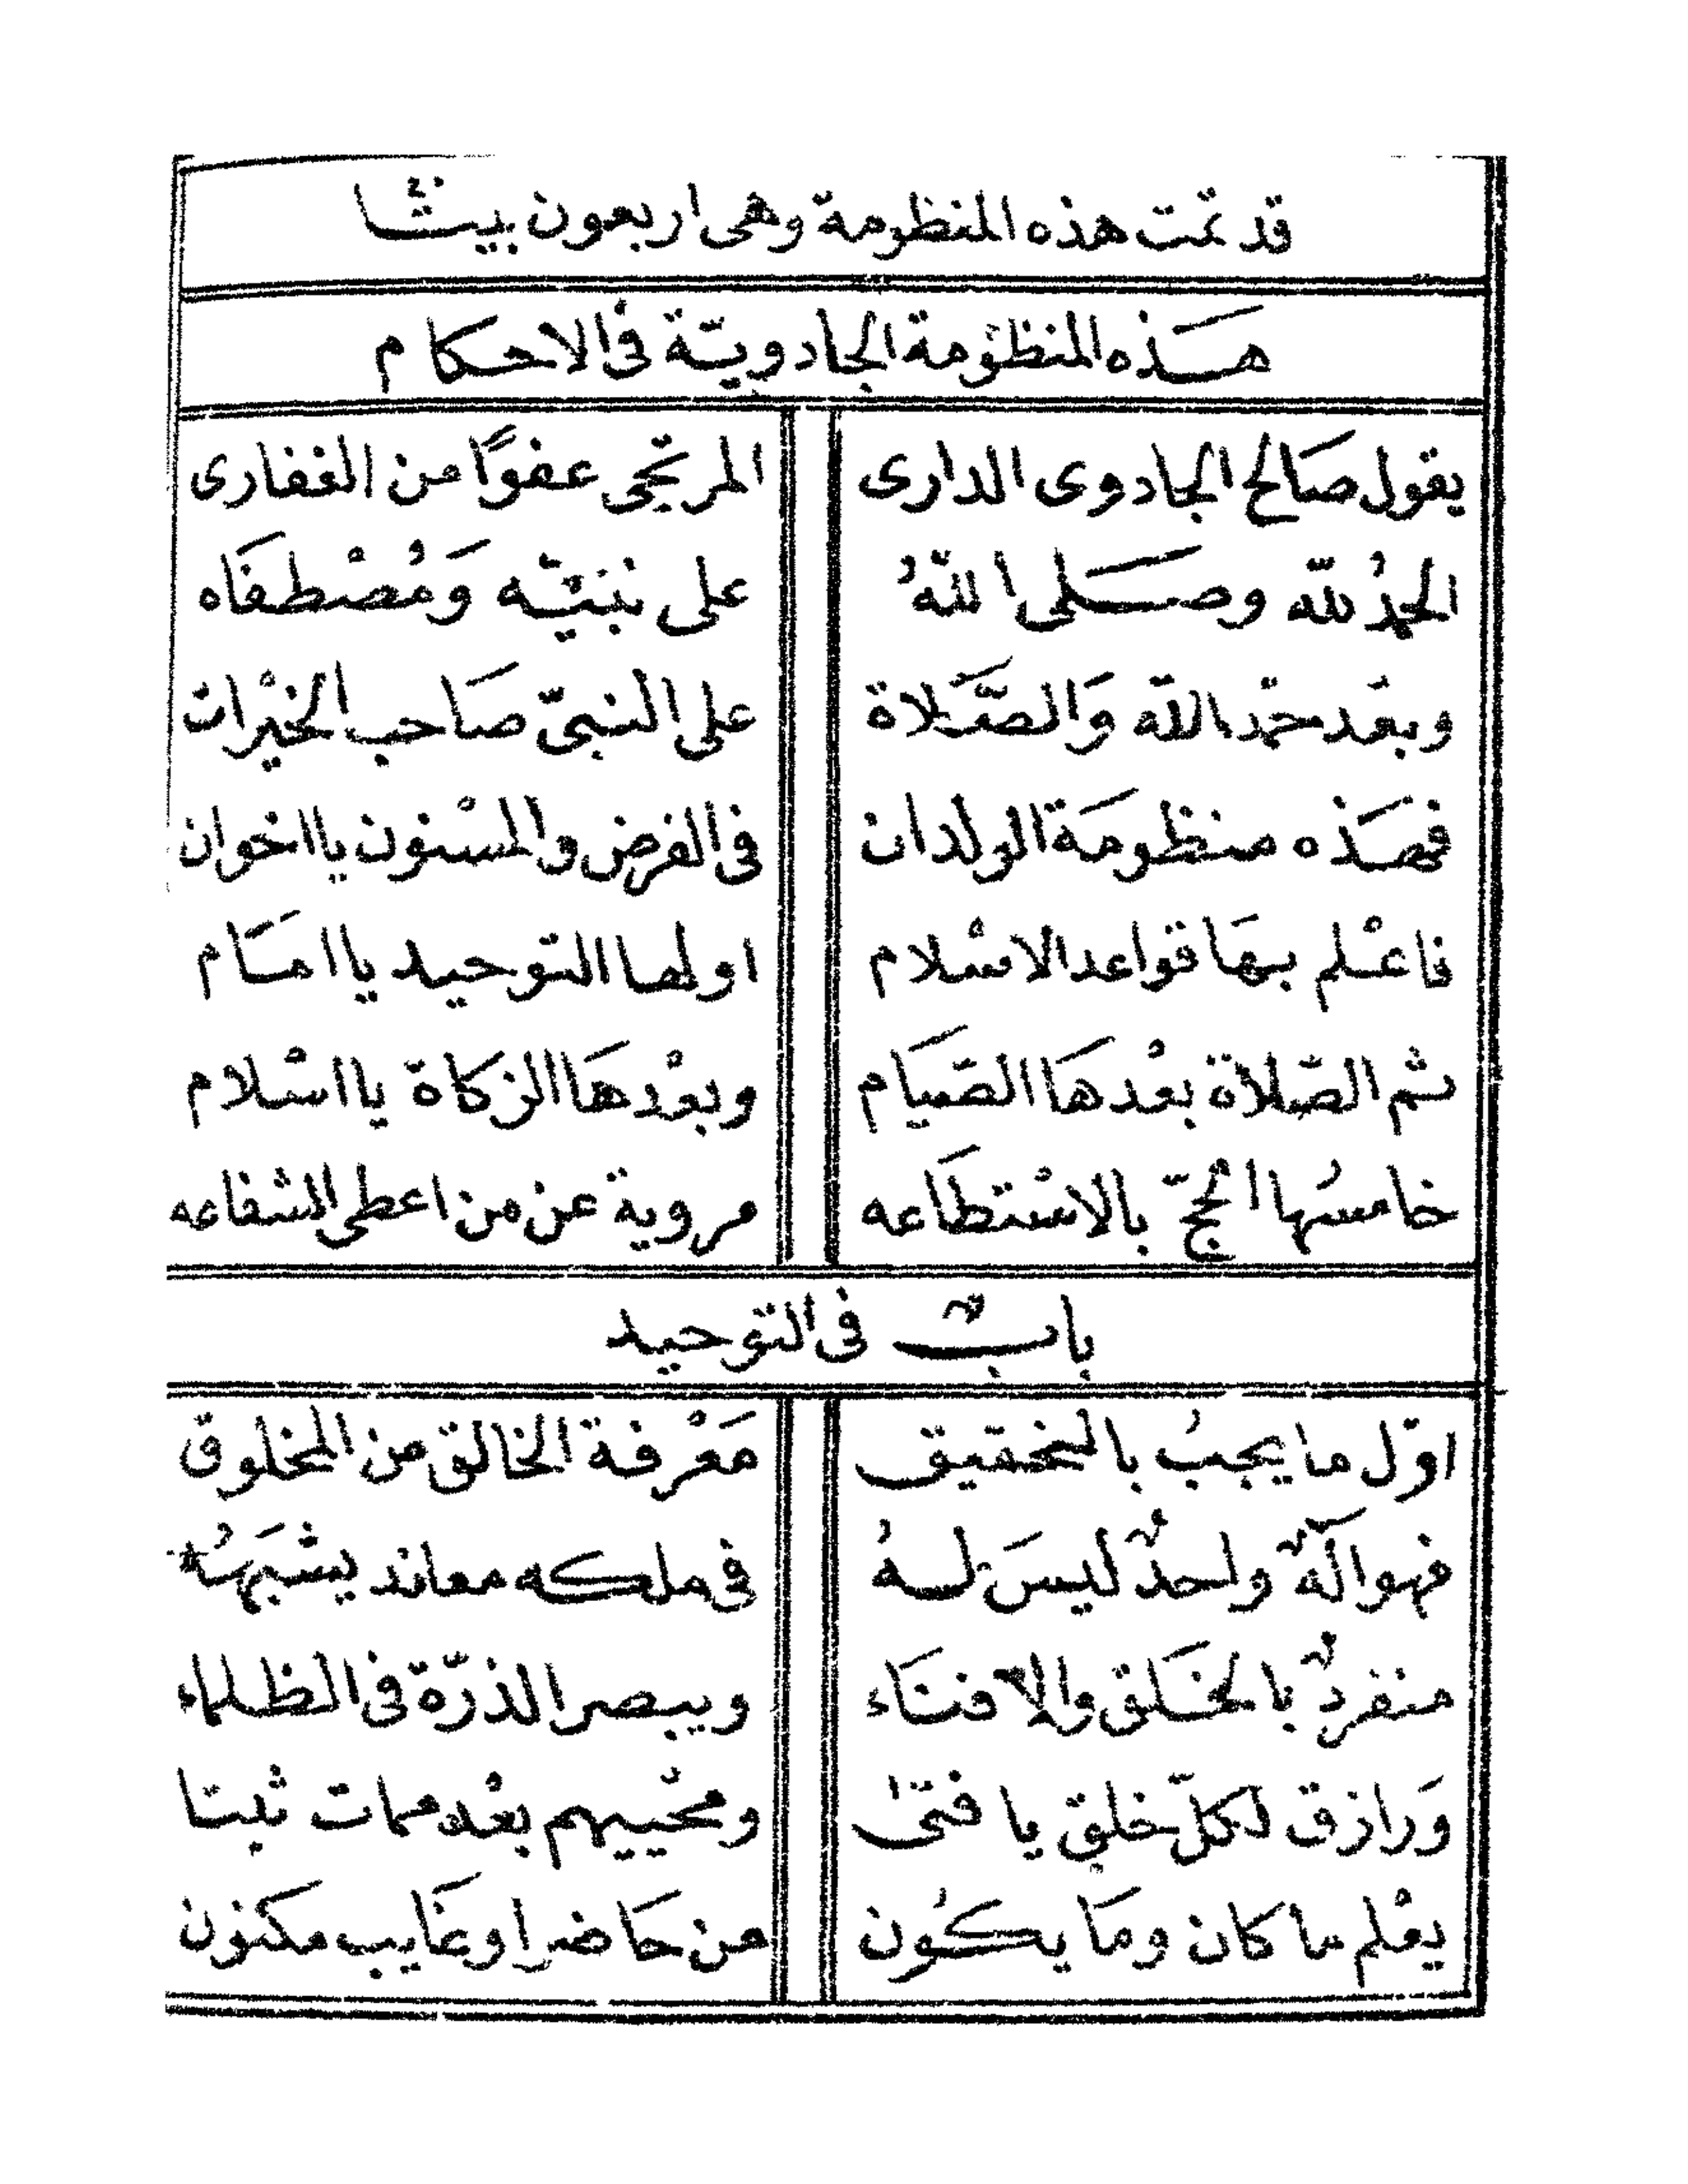 قد تمت هذه المنظومة وهى اربعون بيتًا
هَذه المنظومة الجادويّة فى الاحكام
يقول صَالح الجادوى الدارى المرتجى عفوًا من الغفارى
الحمدُ لله وصَلى اللهُ على نبيّه وَمُصْطفَاه
وبعَد حمْد الله وَالصَّلاة على النبىّ صَاحب الخيْرات
فهَذه منظومَة الولدان فى الفرض والمسْنون يا اخوان
فاعْلم بهَا قواعد الاسْلام اولها التوحيد يا امَام
ثم الصّلاة بعْدهَا الصّيَام وبعْدهَا الزكاة يا اسْلام
خامسُها الحجّ بالاسْتطَاعه مروية عن من اعطى الشفاعه
بابٌ فى التوحيد
اوّل ما يجبُ بالتحقيق مَعْرفة الخالق من المخلوق
فهو آلَهٌ واحدٌ ليسَ لهُ فى ملكه معاند يشْبَههُ
منفردٌ بالخَلق والافنَاء ويبصر الذرّة فى الظلماء
وَرازق لكلّ خلق يا فتى ومحْييهم بعْد ممات ثبتا
يعْلم ما كان ومَا يكُون من حَاضر او غَايب مكنون